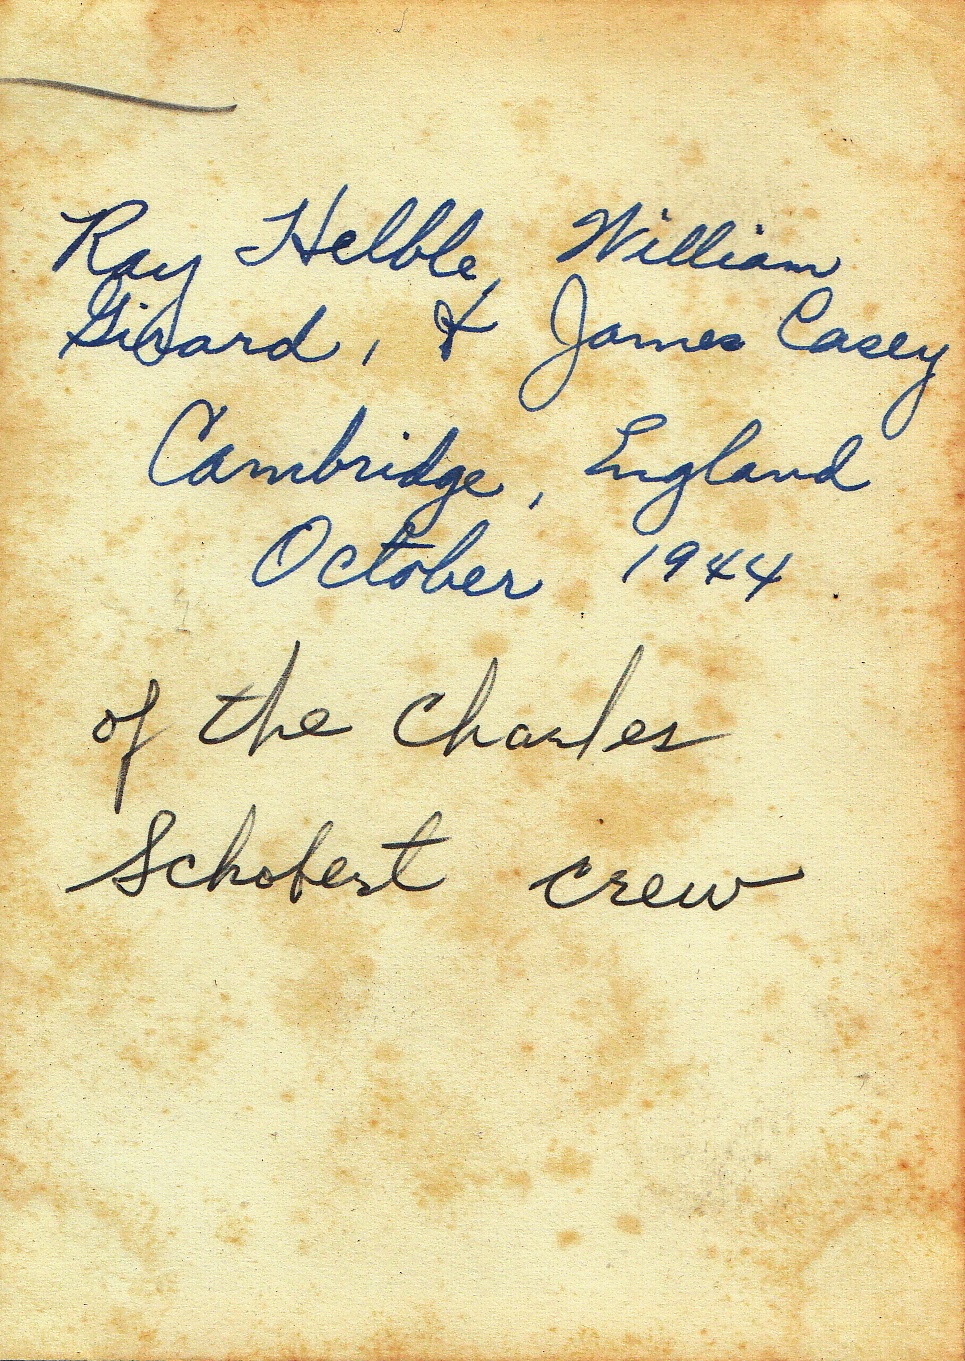 Ray Helble, William
Girard, & James Casey
Cambridge, England
October 1944
of the Charles
Schobert crew